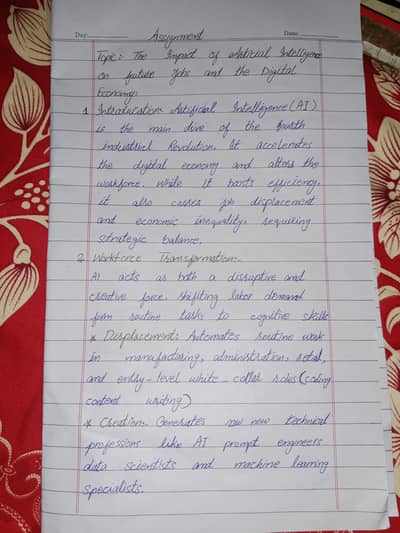 Day: Date:
Assignment
Topic: The Impact of Artificial Intelligence
on future Jobs and the Digital
Economy.
1 Introduction: Artificial Intelligence (AI)
is the main drive of the fourth
industrial Revolution. It accelerates
the digital economy and alters the
workforce. While it boosts efficiency,
it also causes job displacement
and economic inequality, requiking
strategic balance.
2 Workforce Transformation:-
AI acts as both a disruptive and
creative force. shifiting labor demand
from routine tasks to cognitive skills
* Displacement: Automates routine work
in manufacturing, administration, retail,
and entry-level white-collar roles (coding
content writing)
* Creation: Generates new technical
professions like AI prompt engineers
data scientists and machine learning
specialists.